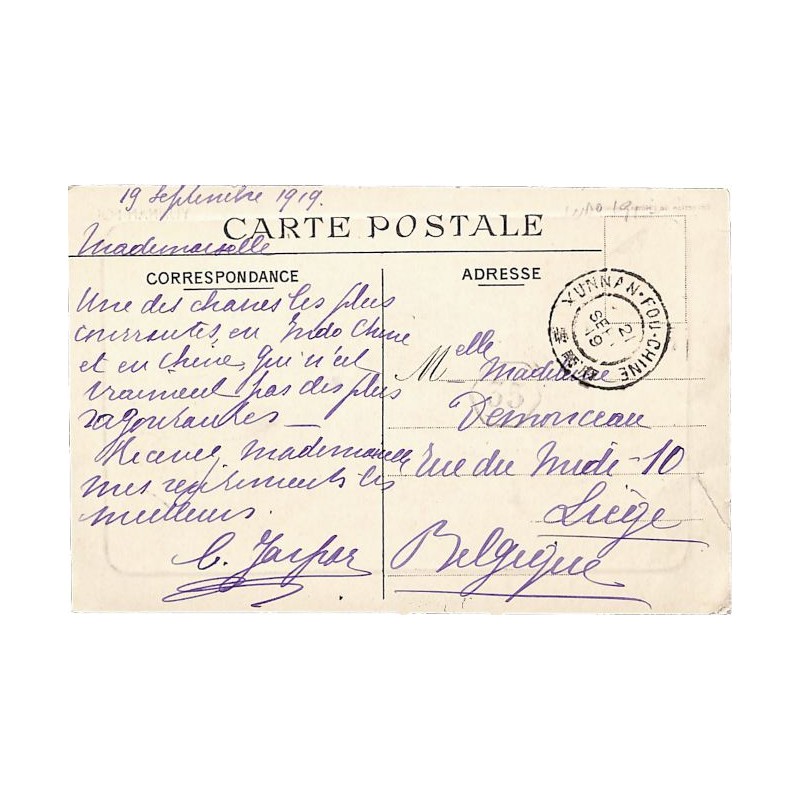 19 Septembre 1919.
CARTE POSTALE
Mademoiselle
CORRESPONDANCE
Une des choses les plus
courrantes, en Indo Chine
et en Chine, qui n'est
vraiment pas des plus
ragoutantes —
Recevez Mademoiselle
mes
meilleurs.
ADRESSE
YUNNAN-FOU-CHINE
21
SEP
19
Melle Madeleine
Demonceau
rue du Midi - 10
Liège
Belgique